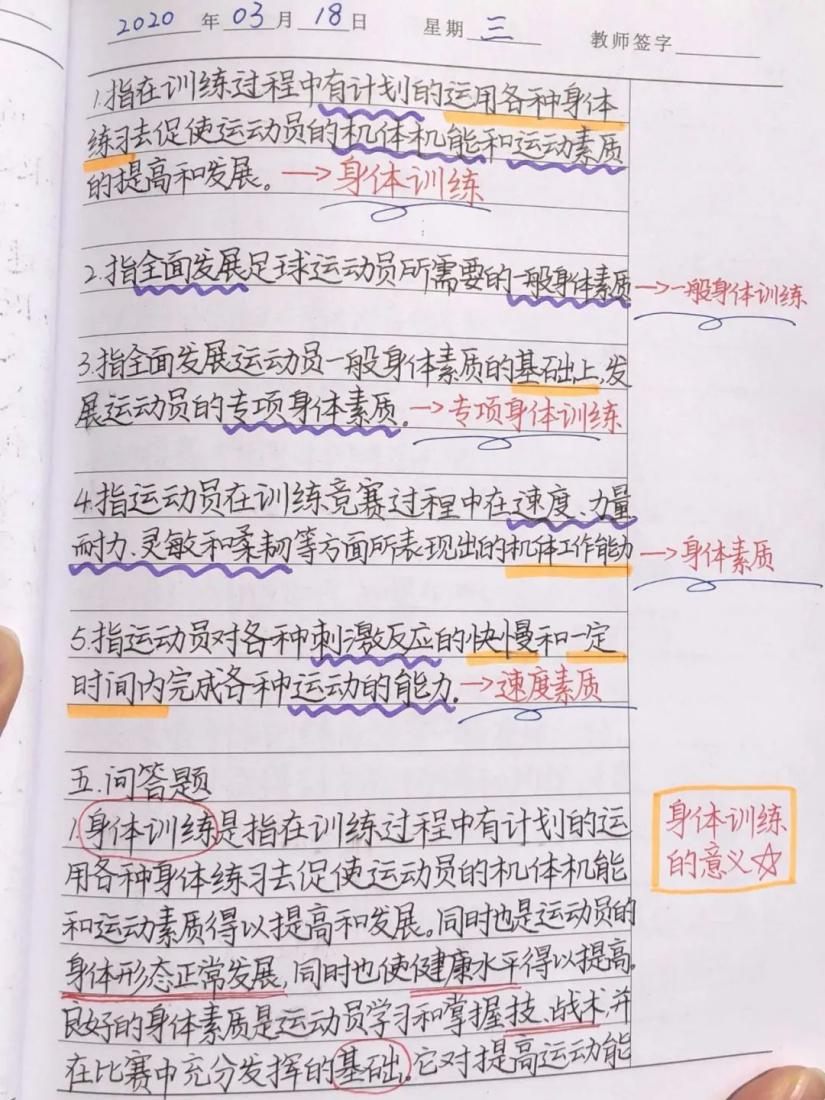 2020年03月18日 星期三 教师签字
1.指在训练过程中有计划的运用各种身体
练习去促使运动员的机体机能和运动素质
的提高和发展。→身体训练
2.指全面发展足球运动员所需要的一般身体素质→一般身体训练
3.指全面发展运动员一般身体素质的基础上,发
展运动员的专项身体素质。→专项身体训练
4.指运动员在训练竞赛过程中在速度、力量
耐力、灵敏和柔韧等方面所表现出的机体工作能力→身体素质
5.指运动员对各种刺激反应的快慢和一定
时间内完成各种运动的能力。→速度素质
五.问答题
1.身体训练是指在训练过程中有计划的运
用各种身体练习去促使运动员的机体机能
和运动素质得以提高和发展。同时也是运动员的
身体形态正常发展,同时也使健康水平得以提高。
良好的身体素质是运动员学习和掌握技、战术并
在比赛中充分发挥的基础。它对提高运动能
身体训练
的意义☆